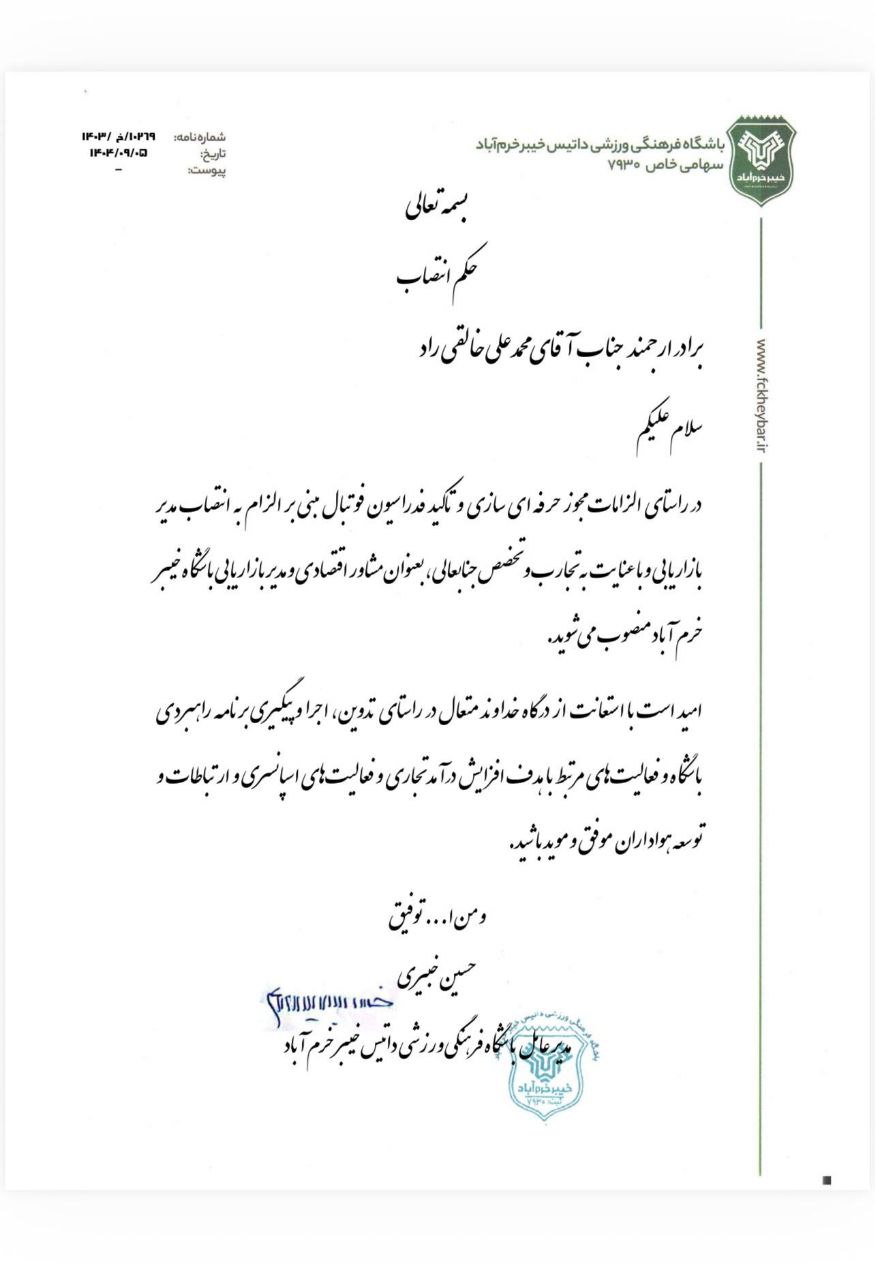 باشگاه فرهنگی ورزشی داتیس خیبر خرم‌آباد
سهامی خاص ۷۹۳۰
خیبر خرم‌آباد
شماره نامه: ۱۰۲۶۹/خ /۱۴۰۳
تاریخ: ۱۴۰۴/۰۹/۰۵
پیوست: –
بسمه تعالی
حکم انتصاب
برادر ارجمند جناب آقای محمد علی خالقی راد
سلام علیکم
در راستای الزامات مجوز حرفه ای سازی و تاکید فدراسیون فوتبال مبنی بر الزام به انتصاب مدیر
بازاریابی و با عنایت به تجارب و تخصص جنابعالی، بعنوان مشاور اقتصادی و مدیر بازاریابی باشگاه خیبر
خرم آباد منصوب می‌شوید.
امید است با استعانت از درگاه خداوند متعال در راستای تدوین، اجرا و پیگیری برنامه راهبردی
باشگاه و فعالیت‌های مرتبط با هدف افزایش درآمد تجاری و فعالیت‌های اسپانسری و ارتباطات و
توسعه هواداران موفق و موید باشید.
و من ا... توفیق
حسین خبیری
مدیر عامل باشگاه فرهنگی ورزشی داتیس خیبر خرم آباد
خیبر خرم‌آباد
ثبت: ۷۹۳۰
www.fckheybar.ir